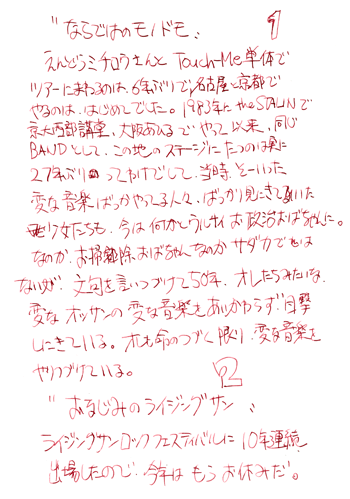 "ならではのモノドモ〟 1
えんどうミチロウさんと Touch-Me 単体で
ツアーにまわるのは、6年ぶりで名古屋と京都で
やるのは、はじめてでした。1983年に theSTALINで
京大西部講堂、大阪あひるでやって以来、同じ
BANDとして、この地のステージにたつのは実に
27年ぶりってわけでして、当時、とーいった
変な音楽ばっかやってる人々、ばっかり見にきていた
少女たちも、今は何かとウルサイお政治おばちゃんに。
なのか、お掃除おばちゃんなのかサダカでは
ないが、文句を言いつづけて50年、オレたちみたいな、
変なオッサンの変な音楽をあいかわらず、目撃
しにきている。オレも命のつづく限り、変な音楽を
やりつづけている。
2
"おなじみのライジングサン〟
ライジングサンロックフェスティバルに10年連続
出場したので、今年は もうお休みだ。